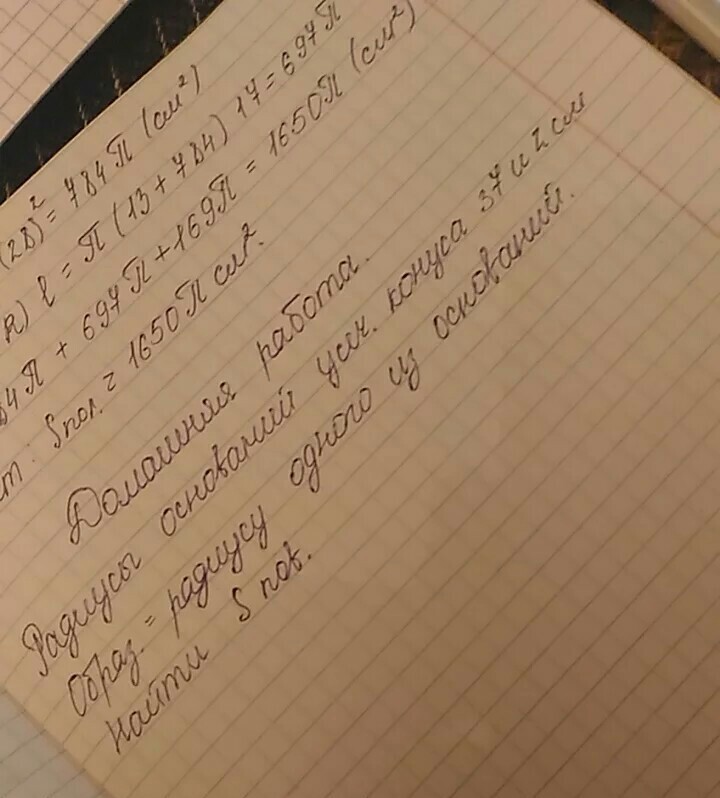 (28)² = 784π (см²)
R) l = π (13 + 784) 17 = 697π
84π + 697π + 169π = 1650π (см²)
т: Sпол. = 1650π см².
Домашняя работа.
Радиусы оснований усеч. конуса 37 и 2 см
Образ. = радиусу одного из оснований.
Найти S пов.